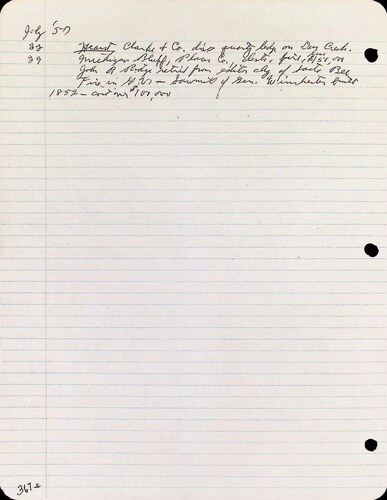 July '57
32 Heard Clarke & Co. disc quartz ledg on Dry Creek.
39 Michigan Bluff, Placer Co., destr. fire, $150,00
John R Ridge retired from editor chg of Sacto Bee
Fire in G.V. — Sawmill of Gen. Winchester built
1852 — cost over $100,000
367e